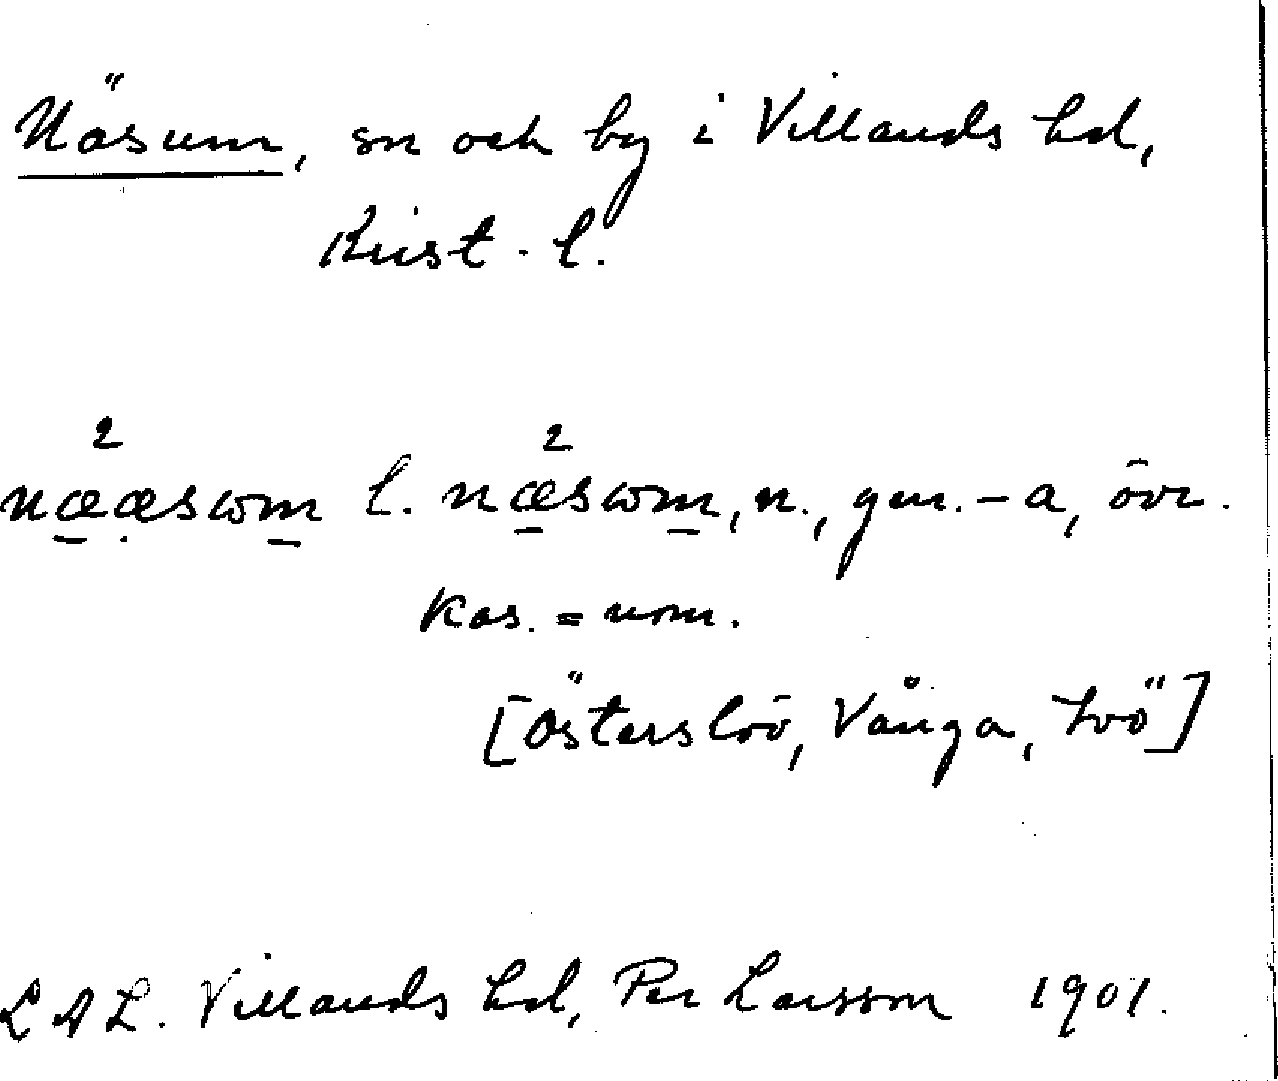 Näsum, sn och by i Villands hd,
Krist. l.
næ²æsωm l. næ²sωm, n., gen. -a, övr.
kas. = nom.
[Österslöv, Vånga, Ivö]
LAL. Villands hd, Per Larsson 1901.